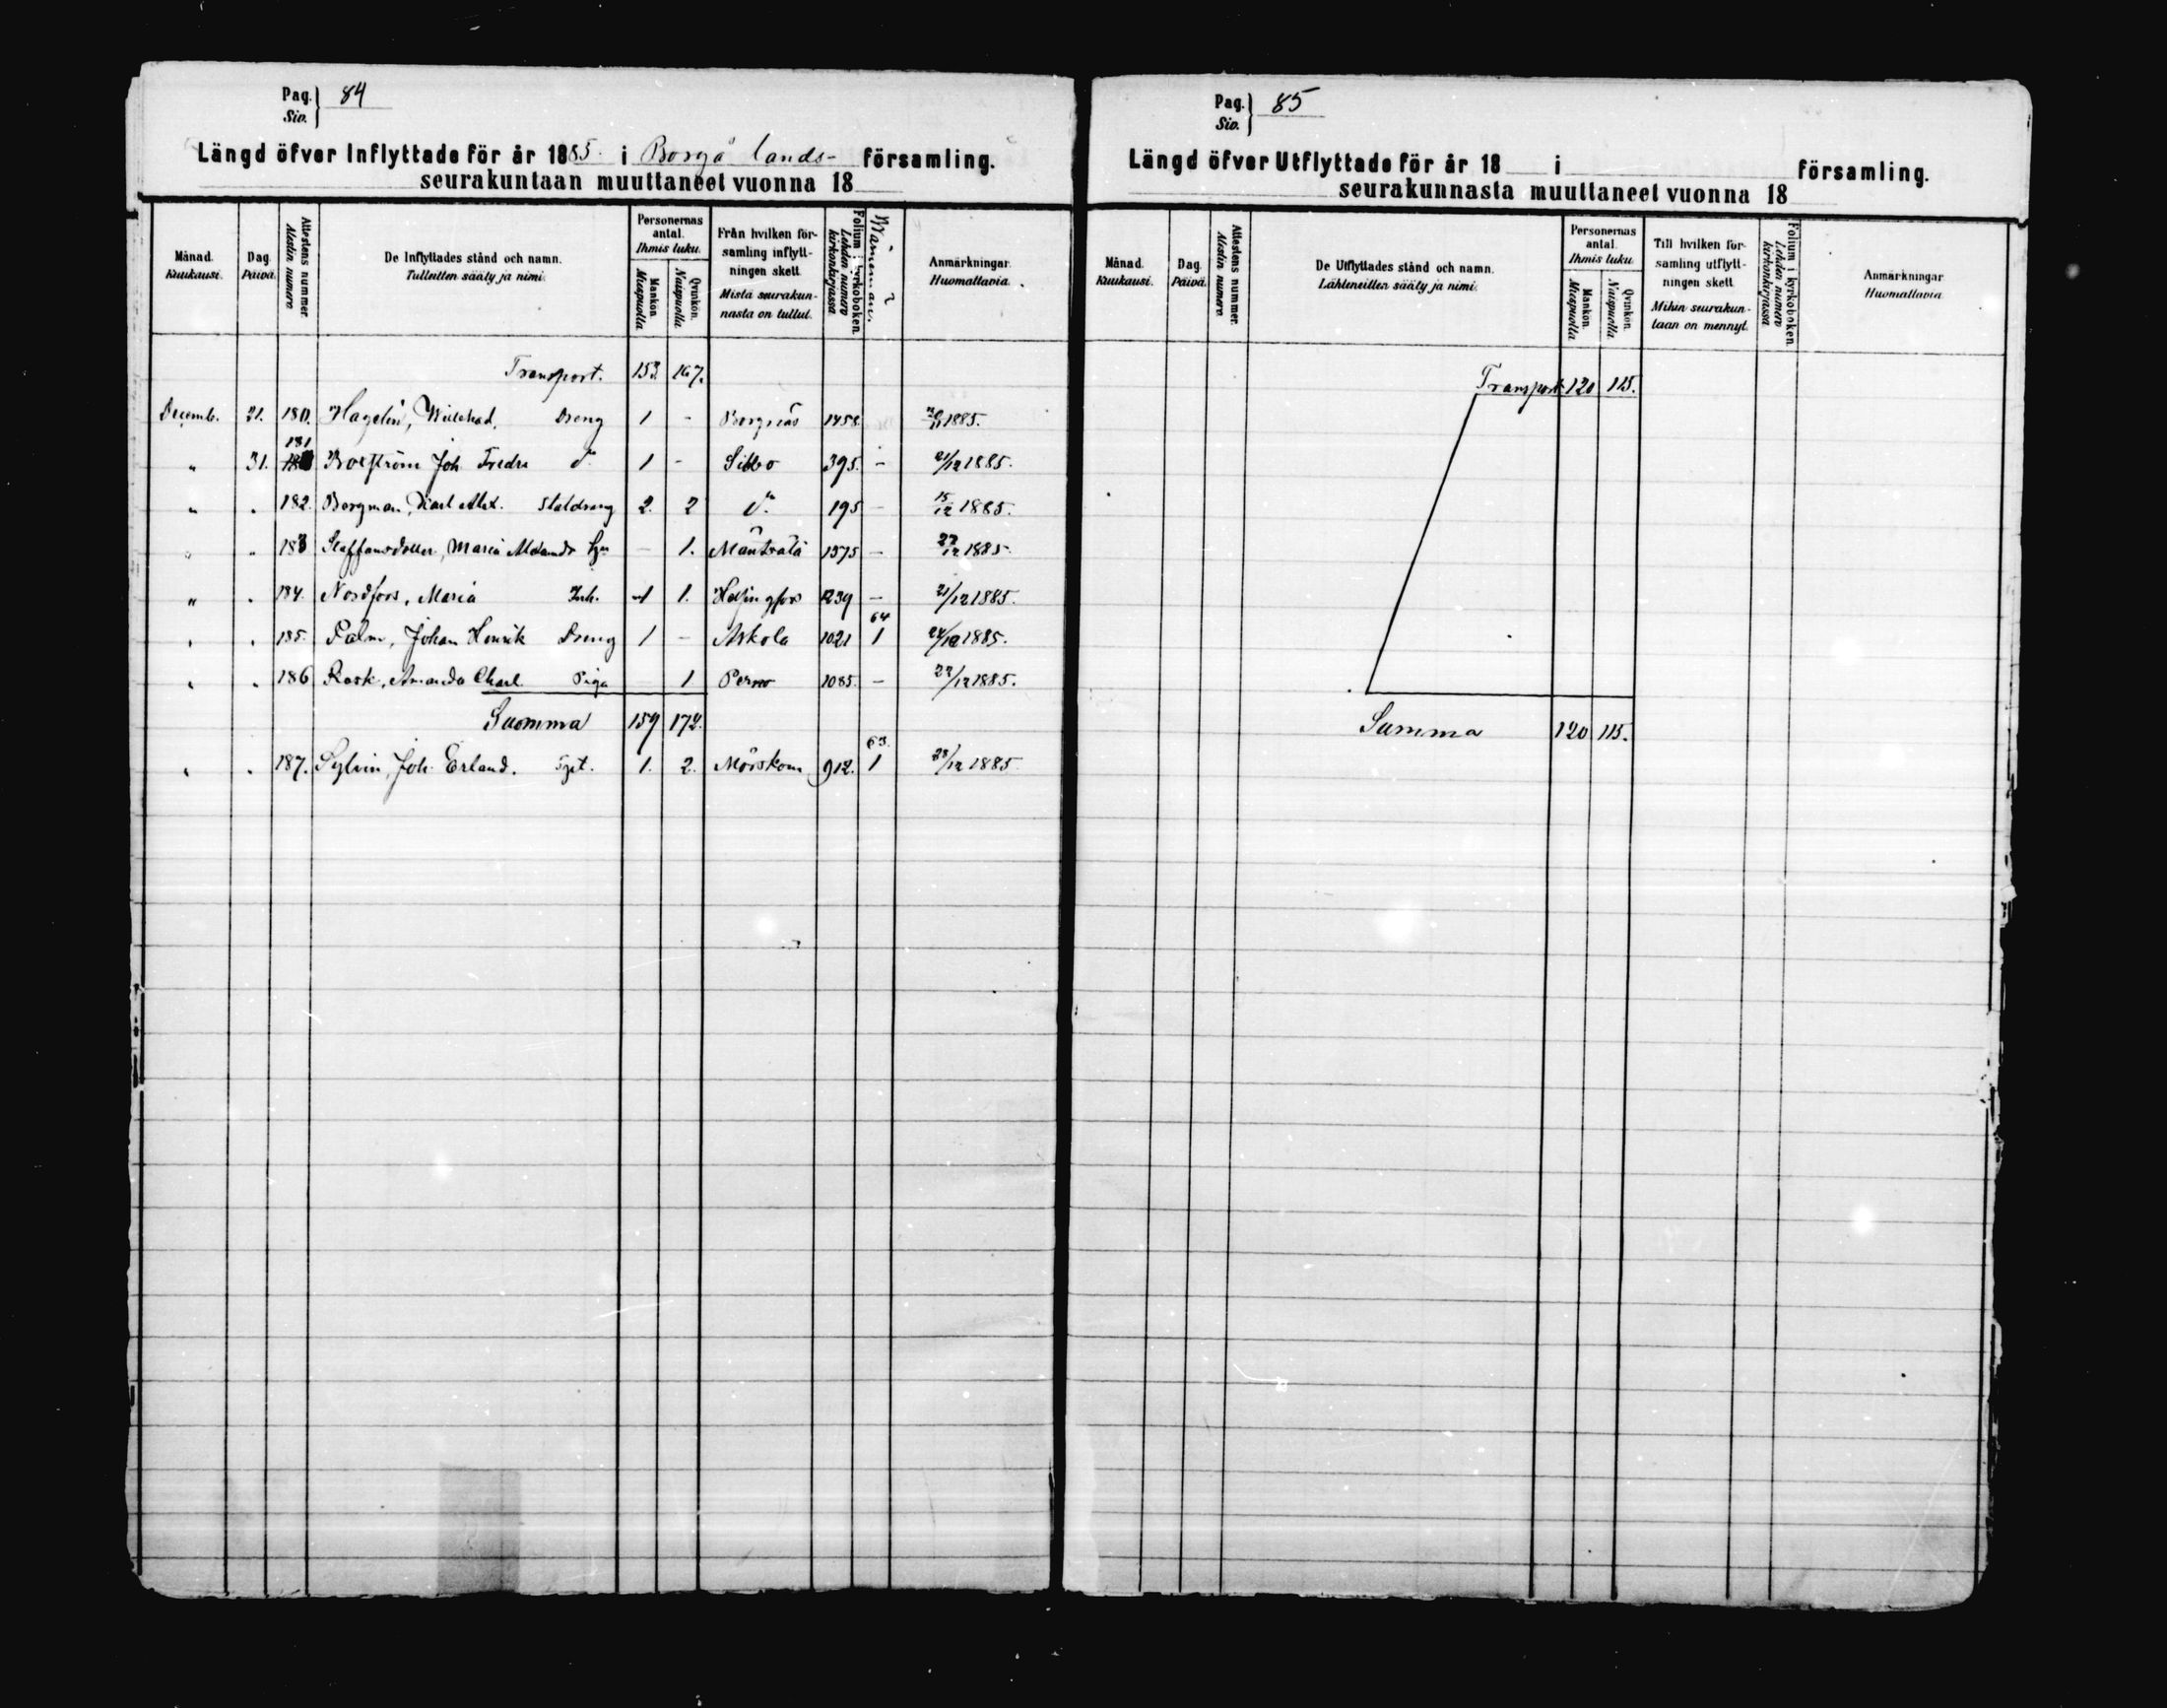 Pag. Siv. } 84
Längd öfver Inflyttade för år 1885. i Borgå lands- församling.
seurakuntaan muuttaneet vuonna 18
Månad. Kuukausi. | Dag. Päivä. | Attestens nummer. Atestin numero | De Inflyttades stånd och namn. Tulleitten sääty ja nimi. | Personernas antal. Ihmis luku. Mankön. Miespuolia | Qvinkön. Naispuolia. | Från hvilken församling inflyttningen skett. Mistä seurakunnasta on tullut. | Folium i kyrkoboken. Lehden numero kirkonkirjassa. | Anmärkningar. Huomattavia.
Transport. 153. 167.
Decemb. 21. 180. Hagelin, Willehad, Dreng 1 - Borgnäs 1458. 1885.
" 31. 181 Joh. Fredr. d:o 1 - Sibbo 395. - 21/12 1885.
" . 182. Bergman, Karl Alex. Staldreng 2. 2 d:o 195 - 15/12 1885.
" . 183 Staffansdotter, Maria - 1. Mäntsälä 1575 - 22/12 1885.
" . 184. Nordfors, Maria Inh. 1 1. Helsingfors 1239 - 21/12 1885.
" . 185. Palm, Johan Henrik Dreng 1 - Askola 1021 64 1 24/12 1885.
" . 186 Rask, Amanda Charl. Piga 1 Perno 1085. - 22/12 1885.
Summa 159 172.
" . 187. Sylvin, Joh. Erland. 1. 2. Mörskom 912. 63. 1 28/12 1885.
Pag. Siv. } 85
Längd öfver Utflyttade för år 18 i församling.
seurakunnasta muuttaneet vuonna 18
Månad. Kuukausi. | Dag. Päivä. | Attestens nummer. Atestin numero. | De Utflyttades stånd och namn. Lähteneitten sääty ja nimi. | Personernas antal. Ihmis luku. Mankön. Miespuolia | Qvinkön. Naispuolia. | Till hvilken församling utflyttningen skett. Mihin seurakuntaan on mennyt. | Folium i kyrkoboken. Lehden numero kirkonkirjassa. | Anmärkningar. Huomattavia
Transport 120 115.
Summa 120 115.